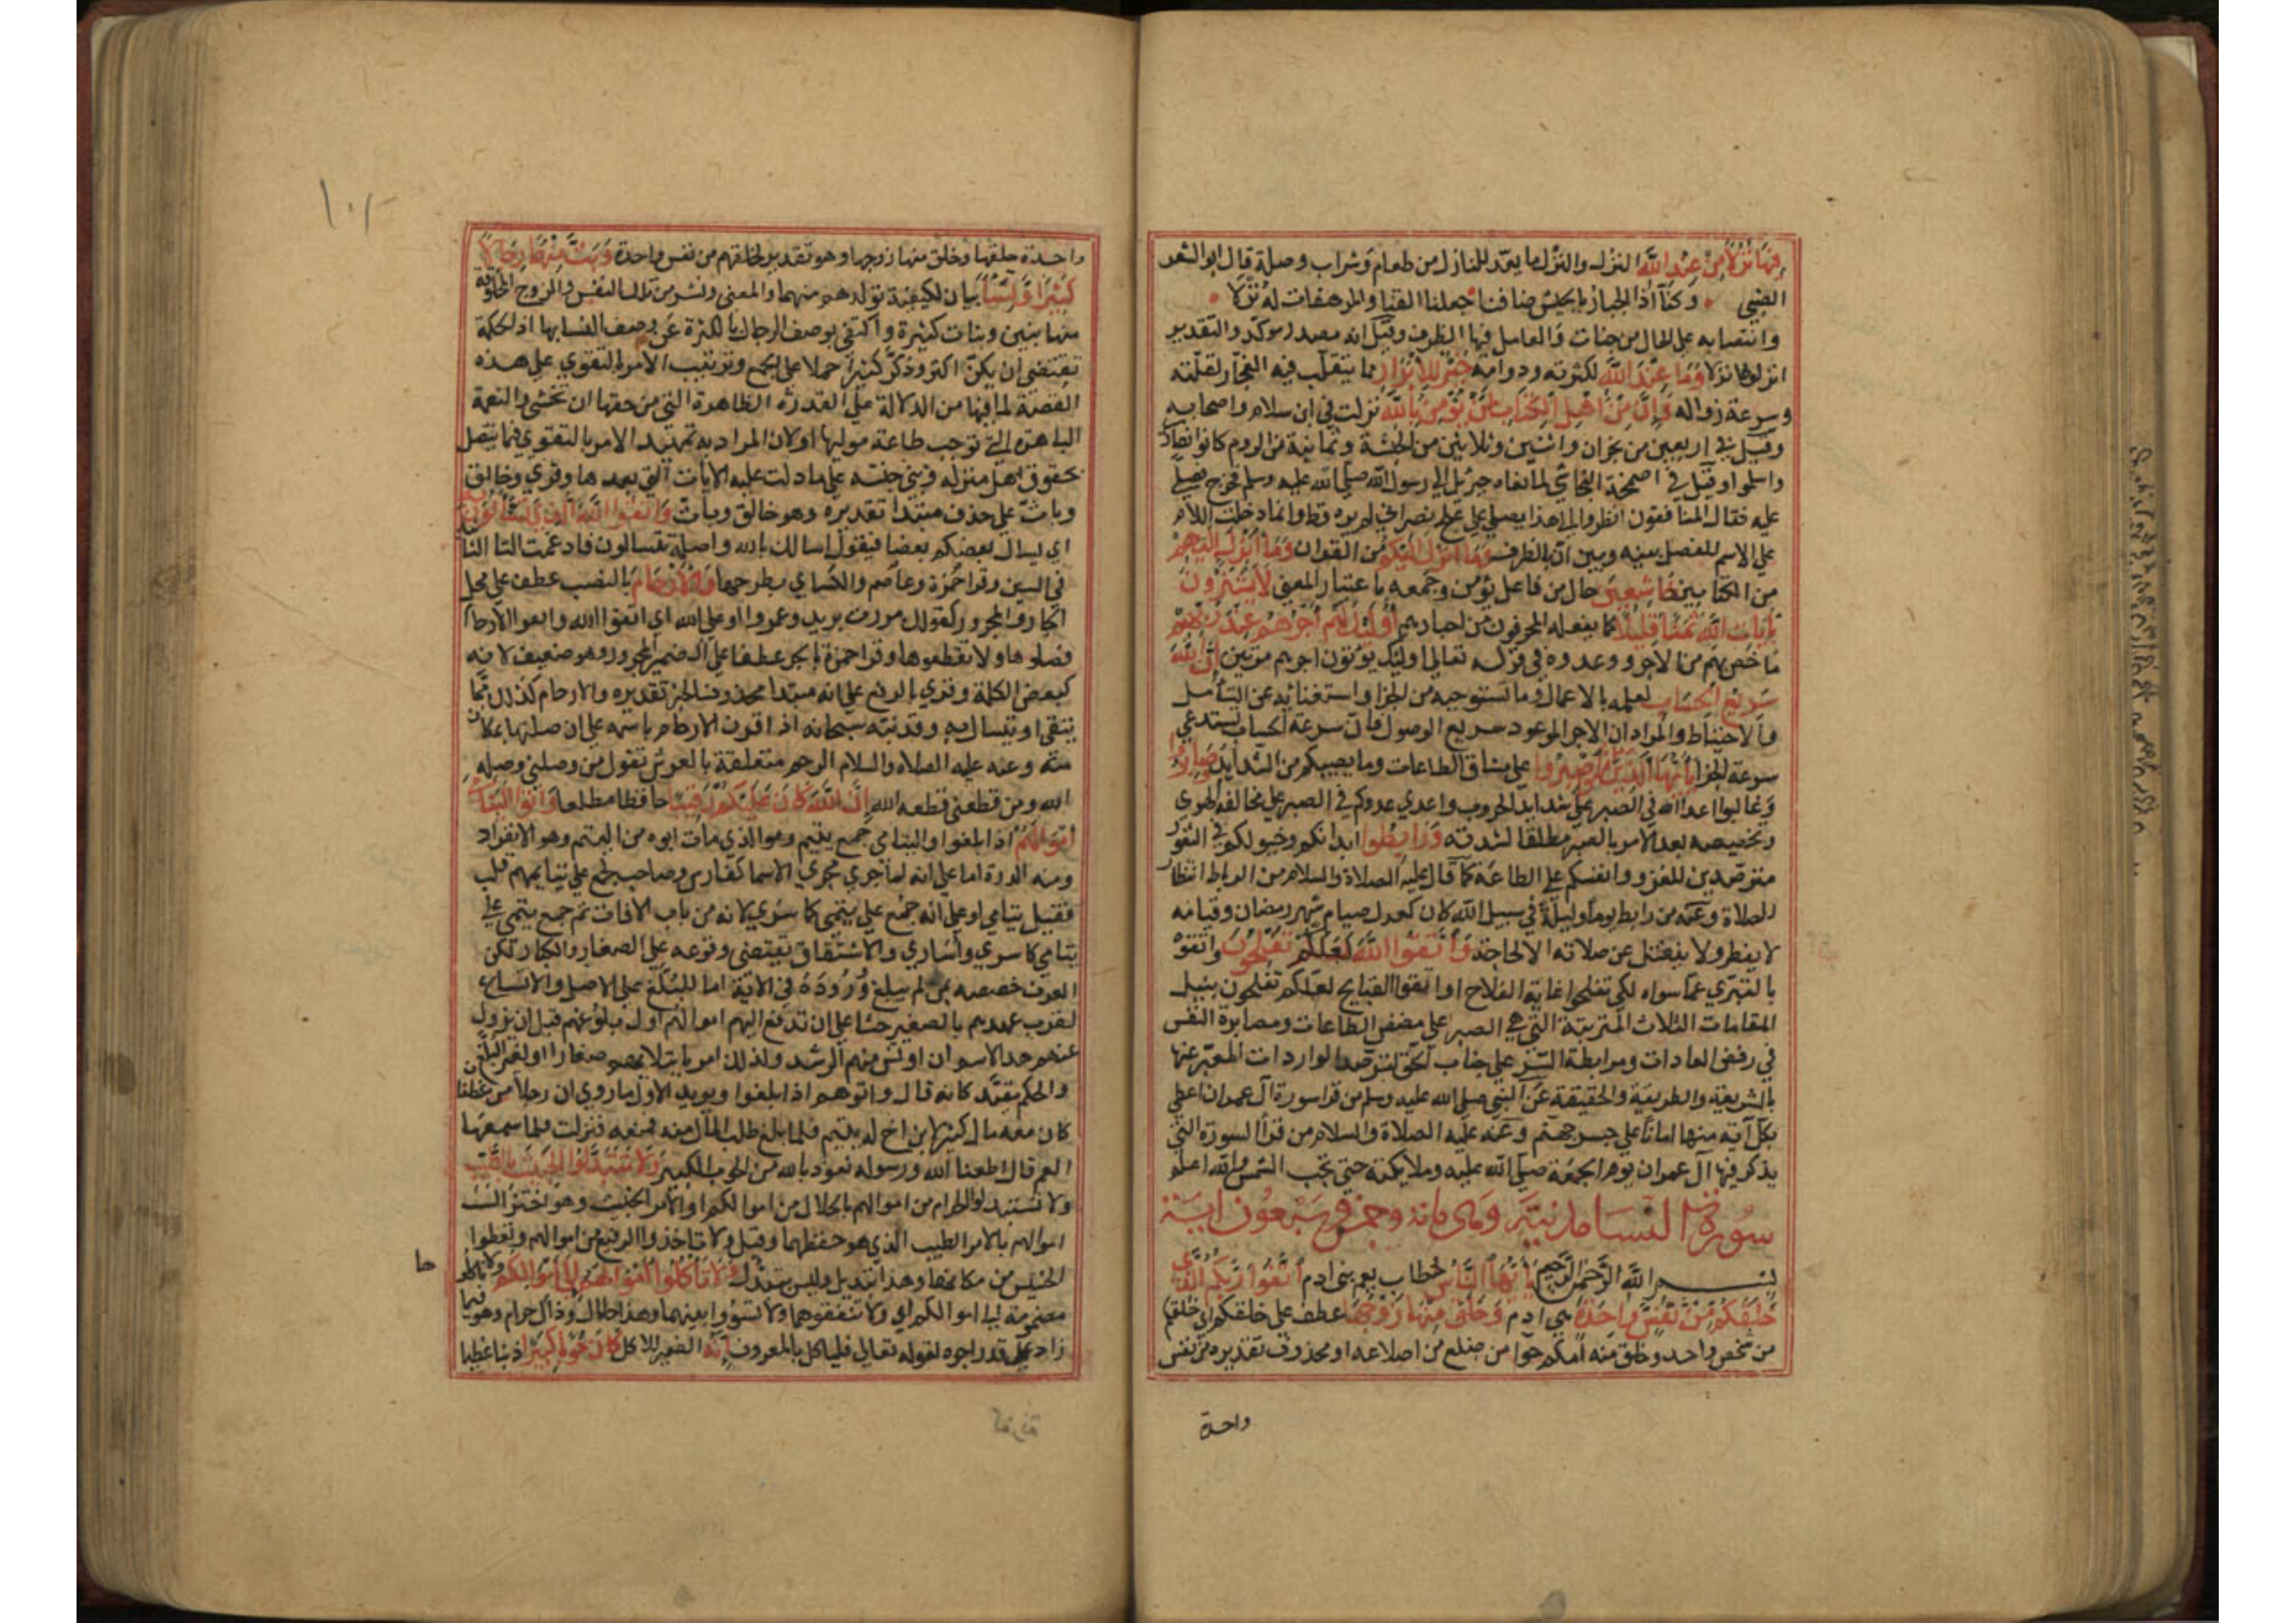 فيها نزلا من عند الله النزل والنزل ما يعد للنازل من طعام وشراب وصلة قال ابو الشعر
الضبي وكنا اذا الجبار بالجيش ضافنا جعلنا القنا والمرهفات له نزلا
وانتصابه على الحال من جنات والعامل فيها الظرف وقيل انه مصدر موكد والتقدير
انزلوها نزلا وما عند الله لكثرته ودوامه خير للابرار مما يتقلب فيه الفجار لقلته
وسرعة زواله وان من اهل الكتاب لمن يؤمن بالله نزلت في ابن سلام واصحابه
وقيل في اربعين من نجران واثنين وثلاثين من الحبشة وثمانية من الروم كانوا نصارى
واسلموا وقيل في اصحمة النجاشي لما نعاه جبريل الى رسول الله صلى الله عليه وسلم فخرج يصلي
عليه فقال المنافقون انظروا الى هذا يصلي على علج نصراني لم يره قط وانما دخلت اللام
على الاسم للفصل بينه وبين ان بالظرف وما انزل اليكم من القران وما انزل اليهم
من الكتابين خاشعين حال من فاعل يؤمن وجمعه باعتبار المعنى لا يشترون
بايات الله ثمنا قليلا كما يفعله المحرفون من احبارهم اولئك لهم اجرهم عند ربهم
ما خص بهم من الاجر ووعدوه في قوله تعالى اوليك يؤتون اجرهم مرتين ان الله
سريع الحساب لعلمه بالاعمال وما تستوجبه من الجزا واستغنائه عن التامل
والاحتياط والمراد ان الاجر الموعود سريع الوصول فان سرعة الحساب تستدعي
سرعة الجزا يا ايها الذين امنوا اصبروا على مشاق الطاعات وما يصيبكم من الشدايد وصابروا
وغالبوا اعدا الله في الصبر على شدايد الحروب واعدي عدوكم في الصبر على مخالفة الهوى
وتخصيصه بعد الامر بالصبر مطلقا لشدته ورابطوا ابدانكم وخيولكم في الثغور
مترصدين للغزو وانفسكم على الطاعة كما قال عليه الصلاة والسلام من الرباط انتظار
الصلاة وعنه من رابط يوما وليلة في سبيل الله كان كعدل صيام شهر رمضان وقيامه
لا يفطر ولا ينفتل عن صلاته الا لحاجة واتقوا الله لعلكم تفلحون واتقوه
بالتبري عما سواه لكي تفلحوا غاية الفلاح او اتقوا القبايح لعلكم تفلحون بنيل
المقامات الثلاث المترتبة التي هي الصبر على مضض الطاعات ومصابرة النفس
في رفض العادات ومرابطة السر على جناب الحق لترصد الواردات المعبر عنها
بالشريعة والطريقة والحقيقة عن النبي صلى الله عليه وسلم من قرا سورة آل عمران اعطي
بكل آية منها امانا على جسر جهنم وعنه عليه الصلاة والسلام من قرأ السورة التي
يذكر فيها آل عمران يوم الجمعة صلى الله عليه وملايكته حتى تجب الشمس والله اعلم
سورة النسا مدنية وهي مائة وخمس وسبعون اية
بسم الله الرحمن الرحيم يا ايها الناس خطاب يعم بني ادم اتقوا ربكم الذي
خلقكم من نفس واحدة هي ادم وخلق منها زوجها عطف على خلقكم اي خلقكم
من شخص واحد وخلق منه امكم حوا من ضلع من اضلاعه او محذوف تقديره من نفس
واحدة
واحدة خلقها وخلق منها زوجها وهو تقدير لخلقهم من نفس واحدة وبث منهما رجالا
كثيرا ونسا بيان لكيفية تولدهم منهما والمعنى ونشر من تلك النفس والزوج المخلوقة
منها بنين وبنات كثيرة واكتفى بوصف الرجال بالكثرة عن وصف النسا بها اذ الحكمة
تقتضي ان يكن اكثر وذكر كثيرا حملا على الجمع وترتيب الامر بالتقوى على هذه
القصة لما فيها من الدلالة على القدرة الظاهرة التي من حقها ان تخشى والنعمة
الباهرة التي توجب طاعة موليها او لان المراد به تمهيد الامر بالتقوى فيما يتصل
بحقوق اهل منزله وبني جنسه على ما دلت عليه الايات التي بعدها وقري وخالق
وباث على حذف مبتدا تقديره وهو خالق وباث واتقوا الله الذي تسالون به
اي يسال بعضكم بعضا فيقول اسالك بالله واصله تتسالون فادغمت التا الثانية
في السين وقرا حمزة وعاصم والكساي بطرحها والارحام بالنصب عطف على محل
الجار والمجرور كقولك مررت بزيد وعمروا او على الله اي اتقوا الله واتقوا الارحام
فصلوها ولا تقطعوها وقرا حمزة بالجر عطفا على الضمير المجرور وهو ضعيف لانه
كبعض الكلمة وقري بالرفع على انه مبتدا محذوف الخبر تقديره والارحام كذلك مما
يتقى او يتسال به وقد نبه سبحانه اذ اقرن الارحام باسمه على ان صلتها بمكان
منه وعنه عليه الصلاة والسلام الرحم متعلقة بالعرش تقول من وصلني وصله
الله ومن قطعني قطعه الله ان الله كان عليكم رقيبا حافظا مطلعا واتوا اليتامى
اموالهم اذا بلغوا واليتامى جمع يتيم وهو الذي مات ابوه من اليتم وهو الانفراد
ومنه الدرة اما على انه لما جرى مجرى الاسما كفارس وصاحب جمع على يتايم ثم قلب
فقيل يتامى او على انه جمع على يتمى كاسرى لانه من باب الافات ثم جمع يتمى على
يتامى كاسرى واسارى والاشتقاق يقتضي وقوعه على الصغار والكبار لكن
العرف خصصه بمن لم يبلغ وروده في الاية اما للبلغ على الاصل والاتساع
لقرب عهدهم بالصغر حثا على ان تدفع اليهم اموالهم اول بلوغهم قبل ان يزول
عنهم هذا الاسم ان اونس منهم الرشد ولذلك امر بابتلايهم صغارا او لغير البلغ
والحكم مقيد كانه قال واتوهم اذا بلغوا ويويد الاول ما روي ان رجلا من غطفان
كان معه مال كثير لابن اخ له يتيم فلما بلغ طلب المال منه فمنعه فنزلت فلما سمعها
العم قال اطعنا الله ورسوله نعوذ بالله من الحوب الكبير ولا تتبدلوا الخبيث بالطيب
ولا تستبدلوا الحرام من اموالهم بالحلال من اموالكم او الامر الخبيث وهو اختزال
اموالهم بالامر الطيب الذي هو حفظها وقيل ولا تاخذوا الرفيع من اموالهم وتعطوا
الخسيس مكانها وهذا تبديل وليس بتبدل ولا تاكلوا اموالهم الى اموالكم ولا تاكلوها
مضمومة الى اموالكم اي ولا تنفقوهما ولا تسووا بينهما وهذا حلال وذاك حرام وهو فيما
زاد على قدر اجره لقوله تعالى فلياكل بالمعروف انه الضمير للاكل كان حوبا كبيرا ذنبا عظيما